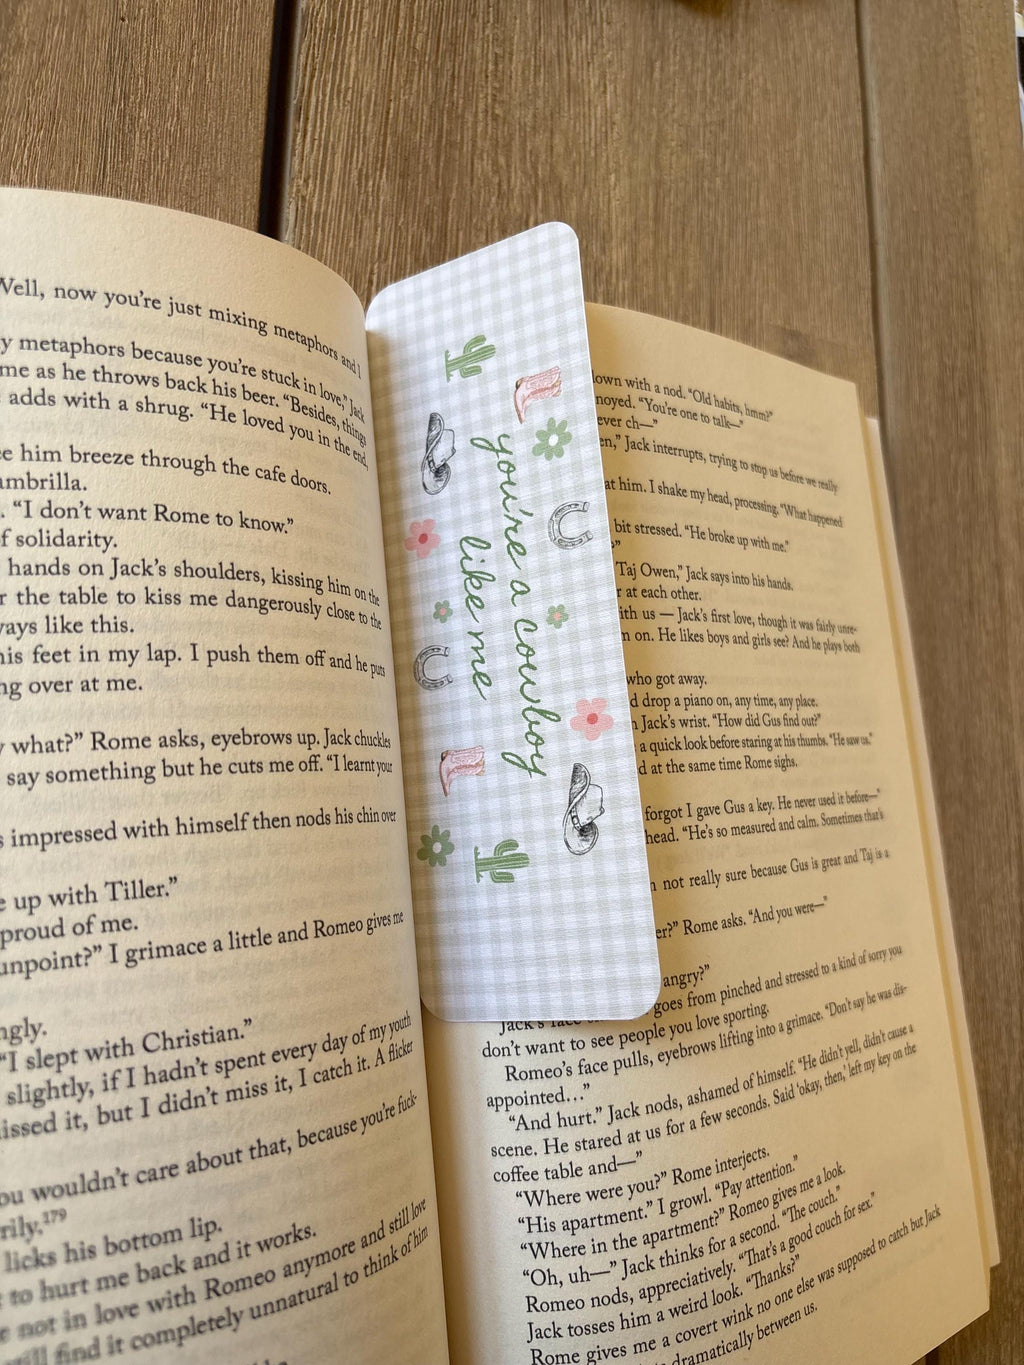 Well, now you're just mixing metaphors and I
y metaphors because you're stuck in love," Jack
me as he throws back his beer. "Besides, things
adds with a shrug. "He loved you in the end,
e him breeze through the cafe doors.
mbrilla.
. "I don't want Rome to know."
f solidarity.
hands on Jack's shoulders, kissing him on the
r the table to kiss me dangerously close to the
ways like this.
his feet in my lap. I push them off and he puts
ng over at me.
y what?" Rome asks, eyebrows up. Jack chuckles
say something but he cuts me off. "I learnt your
s impressed with himself then nods his chin over
e up with Tiller."
proud of me.
unpoint?" I grimace a little and Romeo gives me
ngly.
"I slept with Christian."
slightly, if I hadn't spent every day of my youth
issed it, but I didn't miss it, I catch it. A flicker
ou wouldn't care about that, because you're fuck-
rily.179
licks his bottom lip.
to hurt me back and it works.
e not in love with Romeo anymore and still love
ill find it completely unnatural to think of him
you're a cowboy
like me
down with a nod. "Old habits, hmm?"
noyed. "You're one to talk—"
ever ch—"
en," Jack interrupts, trying to stop us before we really
at him. I shake my head, processing. "What happened
bit stressed. "He broke up with me."
?"
Taj Owen," Jack says into his hands.
r at each other.
ith us — Jack's first love, though it was fairly unre-
n on. He likes boys and girls see? And he plays both
who got away.
d drop a piano on, any time, any place.
n Jack's wrist. "How did Gus find out?"
a quick look before staring at his thumbs. "He saw us."
d at the same time Rome sighs.
forgot I gave Gus a key. He never used it before—"
head. "He's so measured and calm. Sometimes that's
n not really sure because Gus is great and Taj is a
er?" Rome asks. "And you were—"
angry?"
Jack's face goes from pinched and stressed to a kind of sorry you
don't want to see people you love sporting.
Romeo's face pulls, eyebrows lifting into a grimace. "Don't say he was dis-
appointed…"
"And hurt." Jack nods, ashamed of himself. "He didn't yell, didn't cause a
scene. He stared at us for a few seconds. Said 'okay, then,' left my key on the
coffee table and—"
"Where were you?" Rome interjects.
"His apartment." I growl. "Pay attention."
"Where in the apartment?" Romeo gives me a look.
"Oh, uh—" Jack thinks for a second. "The couch."
Romeo nods, appreciatively. "That's a good couch for sex."
Jack tosses him a weird look. "Thanks?"
Rome gives me a covert wink no one else was supposed to catch but Jack
dramatically between us.